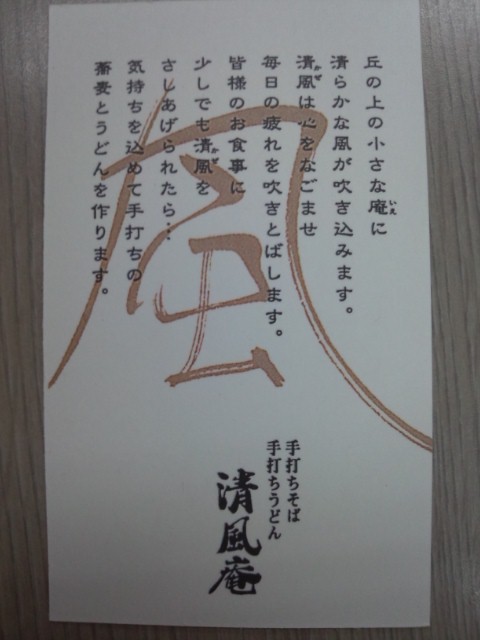 丘の上の小さな庵に
清らかな風が吹き込みます。
清風は心をなごませ
毎日の疲れを吹きとばします。
皆様のお食事に
少しでも清風を
さしあげられたら…
気持ちを込めて手打ちの
蕎麦とうどんを作ります。
風
手打ちそば
手打ちうどん
清風庵